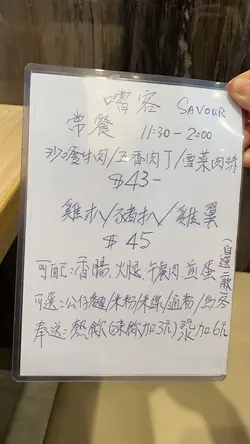 嚐容 SAVOUR
常餐 11:30-2:00
沙嗲牛肉/五香肉丁/雪菜肉絲
$43-
雞扒/豬扒/雞翼
$45
(自選二款)
可配:香腸 火腿 午餐肉 煎蛋
可選:公仔麵/米粉/米線/通粉/烏冬
奉送:熱飲(凍飲加3元)